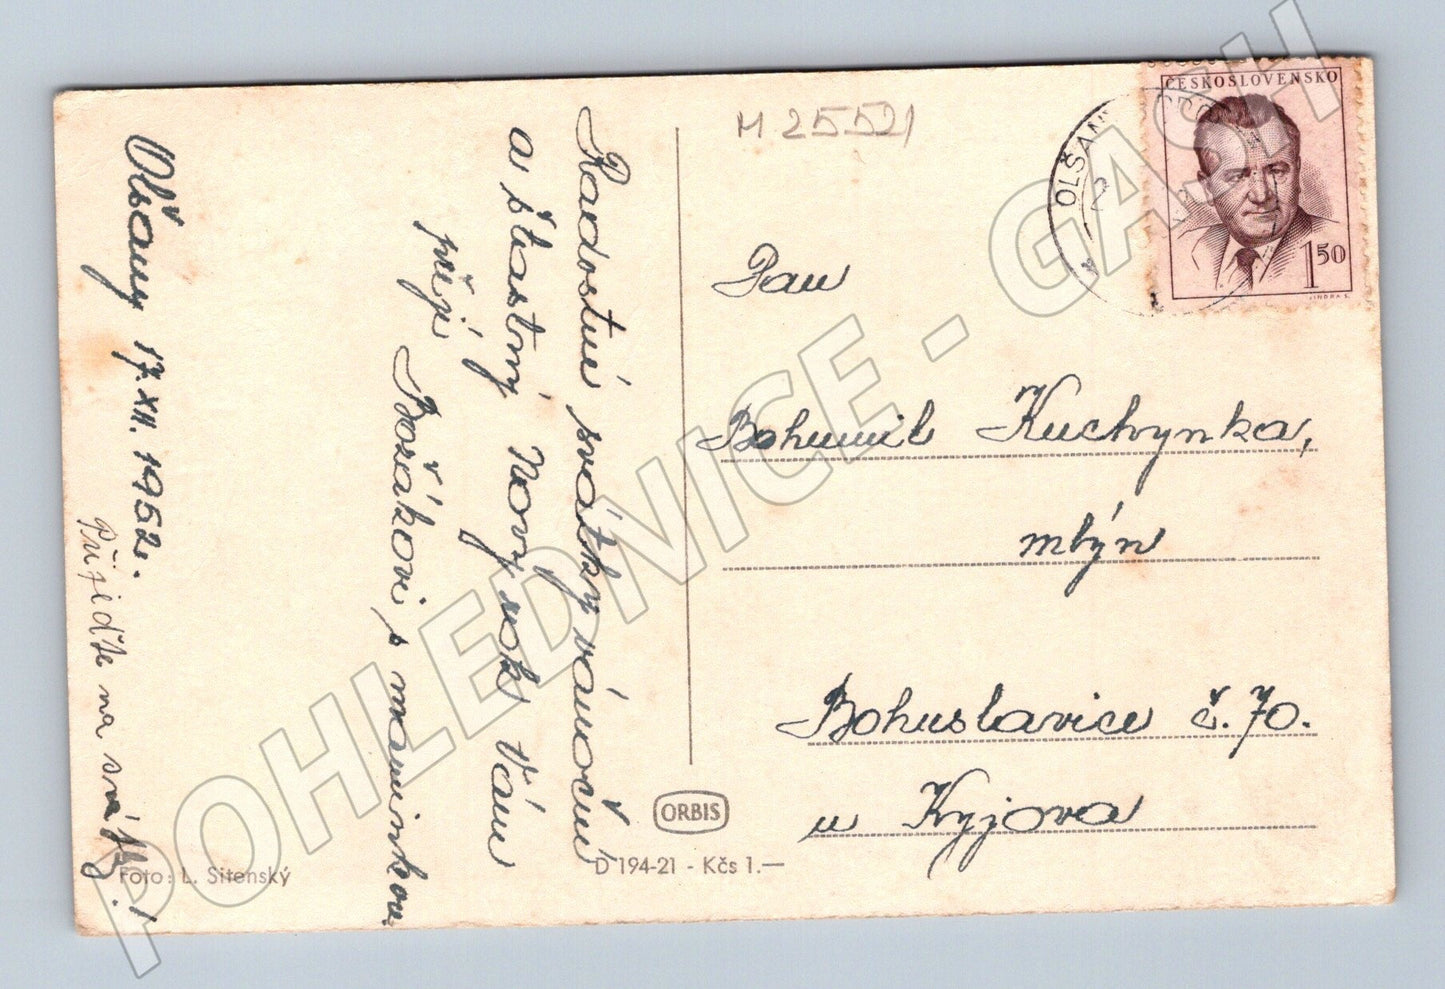 M 25521
ČESKOSLOVENSKO
1 50
JINDRA S.
OLŠANY
Olšany 17.XII.1952.
Radostné svátky vánoční
a šťastný Nový rok Vám
přejí
Božákovi, s maminkou
Přijeďte na svátky!
Pan
Bohumil Kuchynka,
mlýn
Bohuslavice č. 70.
u Kyjova
ORBIS
D 194-21 - Kčs 1.—
Foto: L. Sitenský
POHLEDNICE - GASH